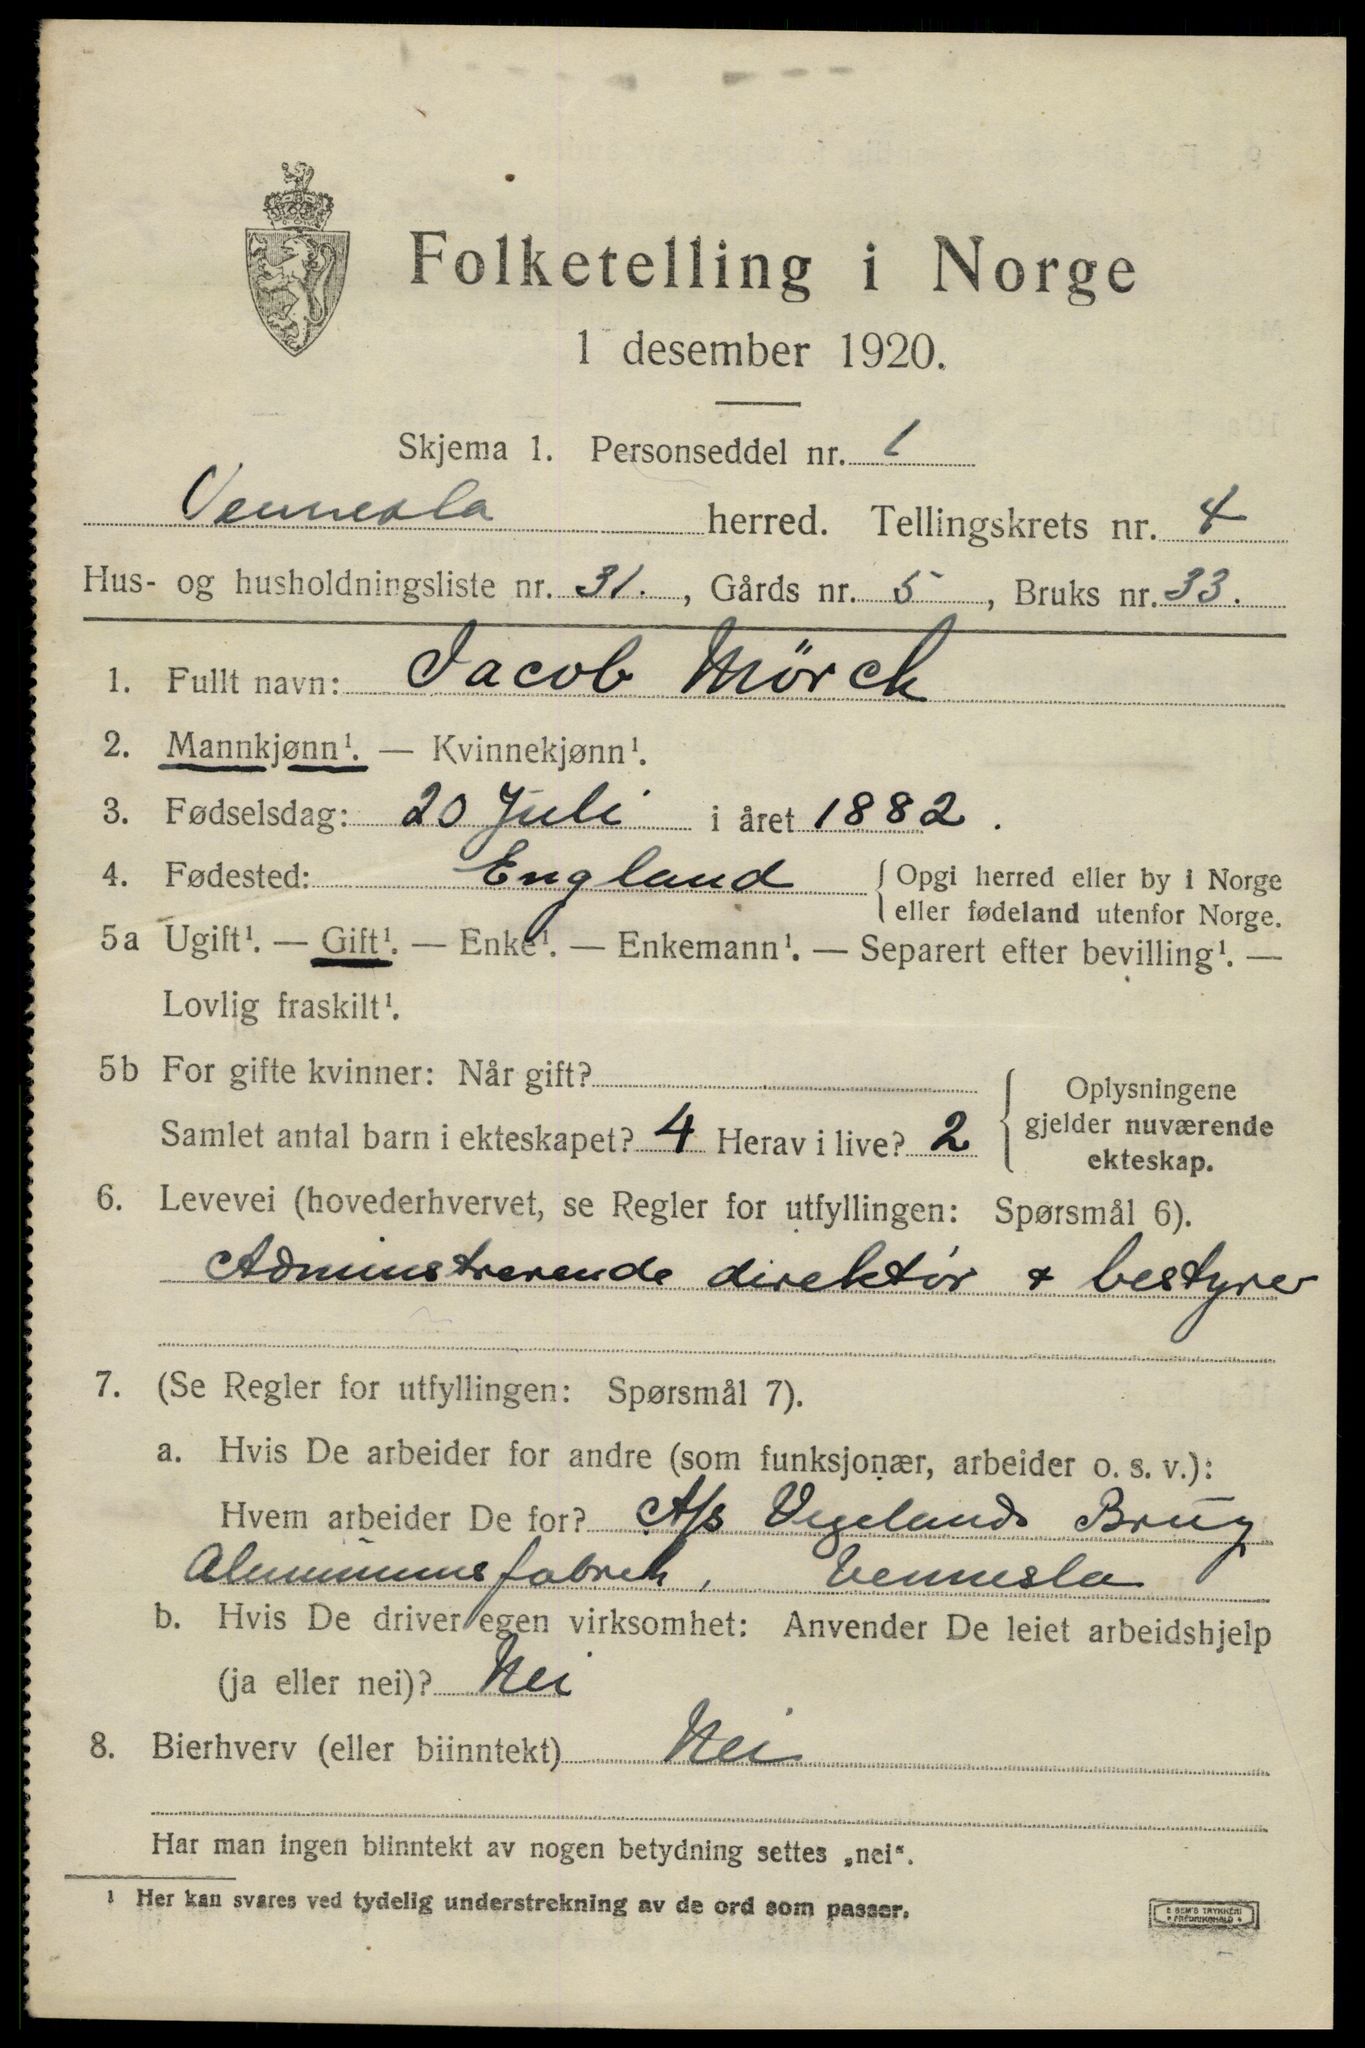 Folketelling i Norge
1 desember 1920.
Skjema 1. Personseddel nr. 1
Vennesla herred. Tellingskrets nr. 4
Hus- og husholdningsliste nr. 31. , Gårds nr. 5 , Bruks nr. 33.
1. Fullt navn: Jacob Mörch
2. Mannkjønn¹. — Kvinnekjønn¹.
3. Fødselsdag: 20 Juli i året 1882.
4. Fødested: England { Opgi herred eller by i Norge
eller fødeland utenfor Norge.
5a Ugift¹. — Gift¹. — Enke¹. — Enkemann¹. — Separert efter bevilling¹. —
Lovlig fraskilt¹.
5b For gifte kvinner: Når gift?
Samlet antal barn i ekteskapet? 4 Herav i live? 2
{ Oplysningene
gjelder nuværende
ekteskap.
6. Levevei (hovederhvervet, se Regler for utfyllingen: Spørsmål 6).
Adminstrerende direktör & bestyrer
7. (Se Regler for utfyllingen: Spørsmål 7).
a. Hvis De arbeider for andre (som funksjonær, arbeider o. s. v.):
Hvem arbeider De for? A/s Vigelands Brug
Aluminiumsfabrik, Vennesla
b. Hvis De driver egen virksomhet: Anvender De leiet arbeidshjelp
(ja eller nei)? Nei
8. Bierhverv (eller biinntekt) Nei
Har man ingen biinntekt av nogen betydning settes „nei“.
¹ Her kan svares ved tydelig understrekning av de ord som passer.
E SEM'S TRYKKERI
FREDRIKSHALD